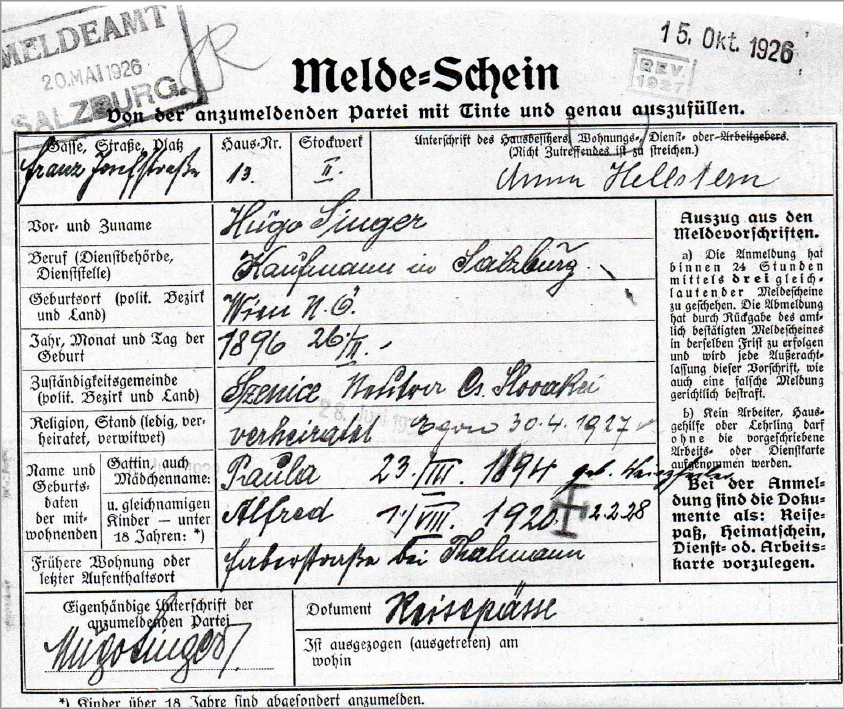 MELDEAMT
20. MAI 1926
SALZBURG.
15. Okt. 1926
REV.
1927
Melde=Schein
Von der anzumeldenden Partei mit Tinte und genau auszufüllen.
Gasse, Straße, Platz
Franz Josefstraße
Haus-Nr.
13.
Stockwerk
II.
Unterschrift des Hausbesitzers, Wohnungs-, Dienst- oder Arbeitgebers.
(Nicht Zutreffendes ist zu streichen.)
Anna Hellstern
Vor- und Zuname
Hugo Singer
Beruf (Dienstbehörde,
Dienststelle)
Kaufmann in Salzburg.
Geburtsort (polit. Bezirk
und Land)
Wien N. Ö.
Jahr, Monat und Tag der
Geburt
1896 26./II.
Zuständigkeitsgemeinde
(polit. Bezirk und Land)
Szenice Cs. Slovakei
Religion, Stand (ledig, ver-
heiratet, verwitwet)
verheiratet 30.4.1927
Name und
Geburts-
daten
der mit-
wohnenden
Gattin, auch
Mädchenname:
Paula 23./III. 1894 geb.
u. gleichnamigen
Kinder — unter
18 Jahren: *)
Alfred 1./VIII. 1920 2.2.28
Frühere Wohnung oder
letzter Aufenthaltsort
Faberstraße bei Thalmann
Auszug aus den
Meldevorschriften.
a) Die Anmeldung hat
binnen 24 Stunden
mittels drei gleich-
lautender Meldescheine
zu geschehen. Die Abmeldung
hat durch Rückgabe des amt-
lich bestätigten Meldescheines
in derselben Frist zu erfolgen
und wird jede Außeracht-
lassung dieser Vorschrift, wie
auch eine falsche Meldung
gerichtlich bestraft.
b) Kein Arbeiter, Haus-
gehilfe oder Lehrling darf
ohne die vorgeschriebene
Arbeits- oder Dienstkarte
aufgenommen werden.
Bei der Anmel-
dung sind die Doku-
mente als: Reise-
paß, Heimatschein,
Dienst- od. Arbeits-
karte vorzulegen.
Eigenhändige Unterschrift der
anzumeldenden Partei
Hugo Singer
Dokument Reisepässe
Ist ausgezogen (ausgetreten) am
wohin
*) Kinder über 18 Jahre sind abgesondert anzumelden.